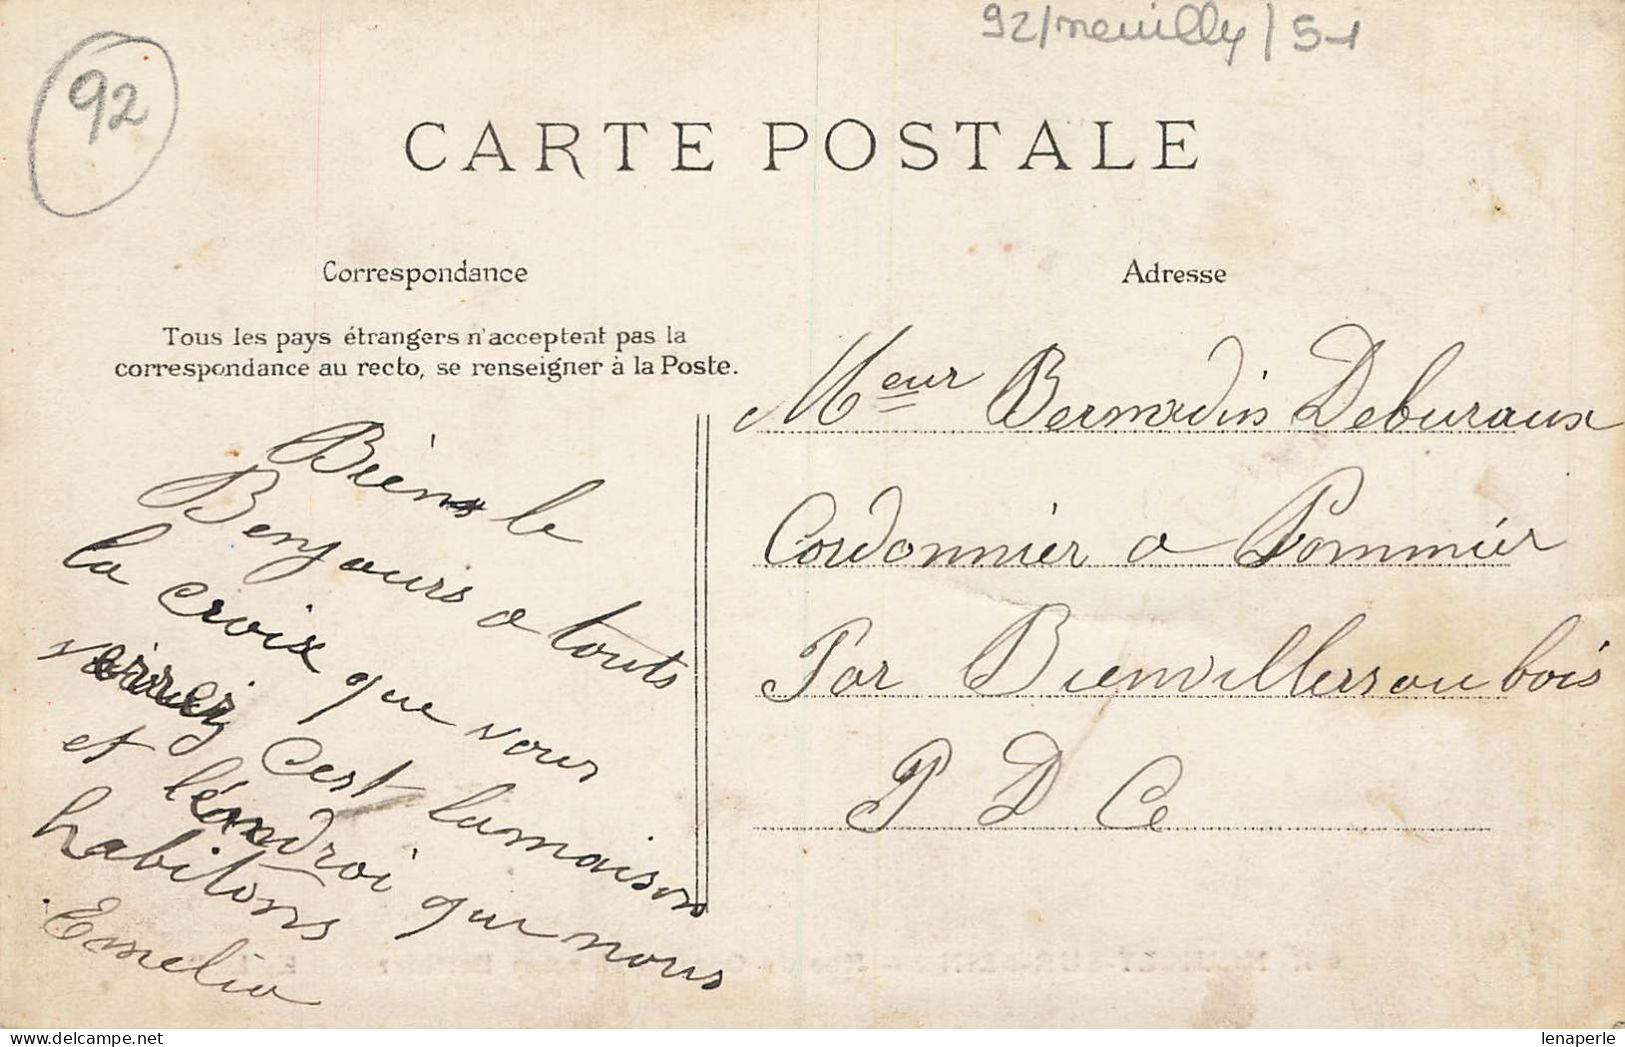 92/neuilly/51
92
CARTE POSTALE
Correspondance
Adresse
Tous les pays étrangers n'acceptent pas la
correspondance au recto, se renseigner à la Poste.
Biéns le
Benjours a touts
la croix que vous
veirrez Cest lamaison
et léandroi que nous
habitons
Emelia
Meur Bernadin Deburaux
Cordonnier a Pommier
Par Bienvillers au bois
P D Ce
lenaperle